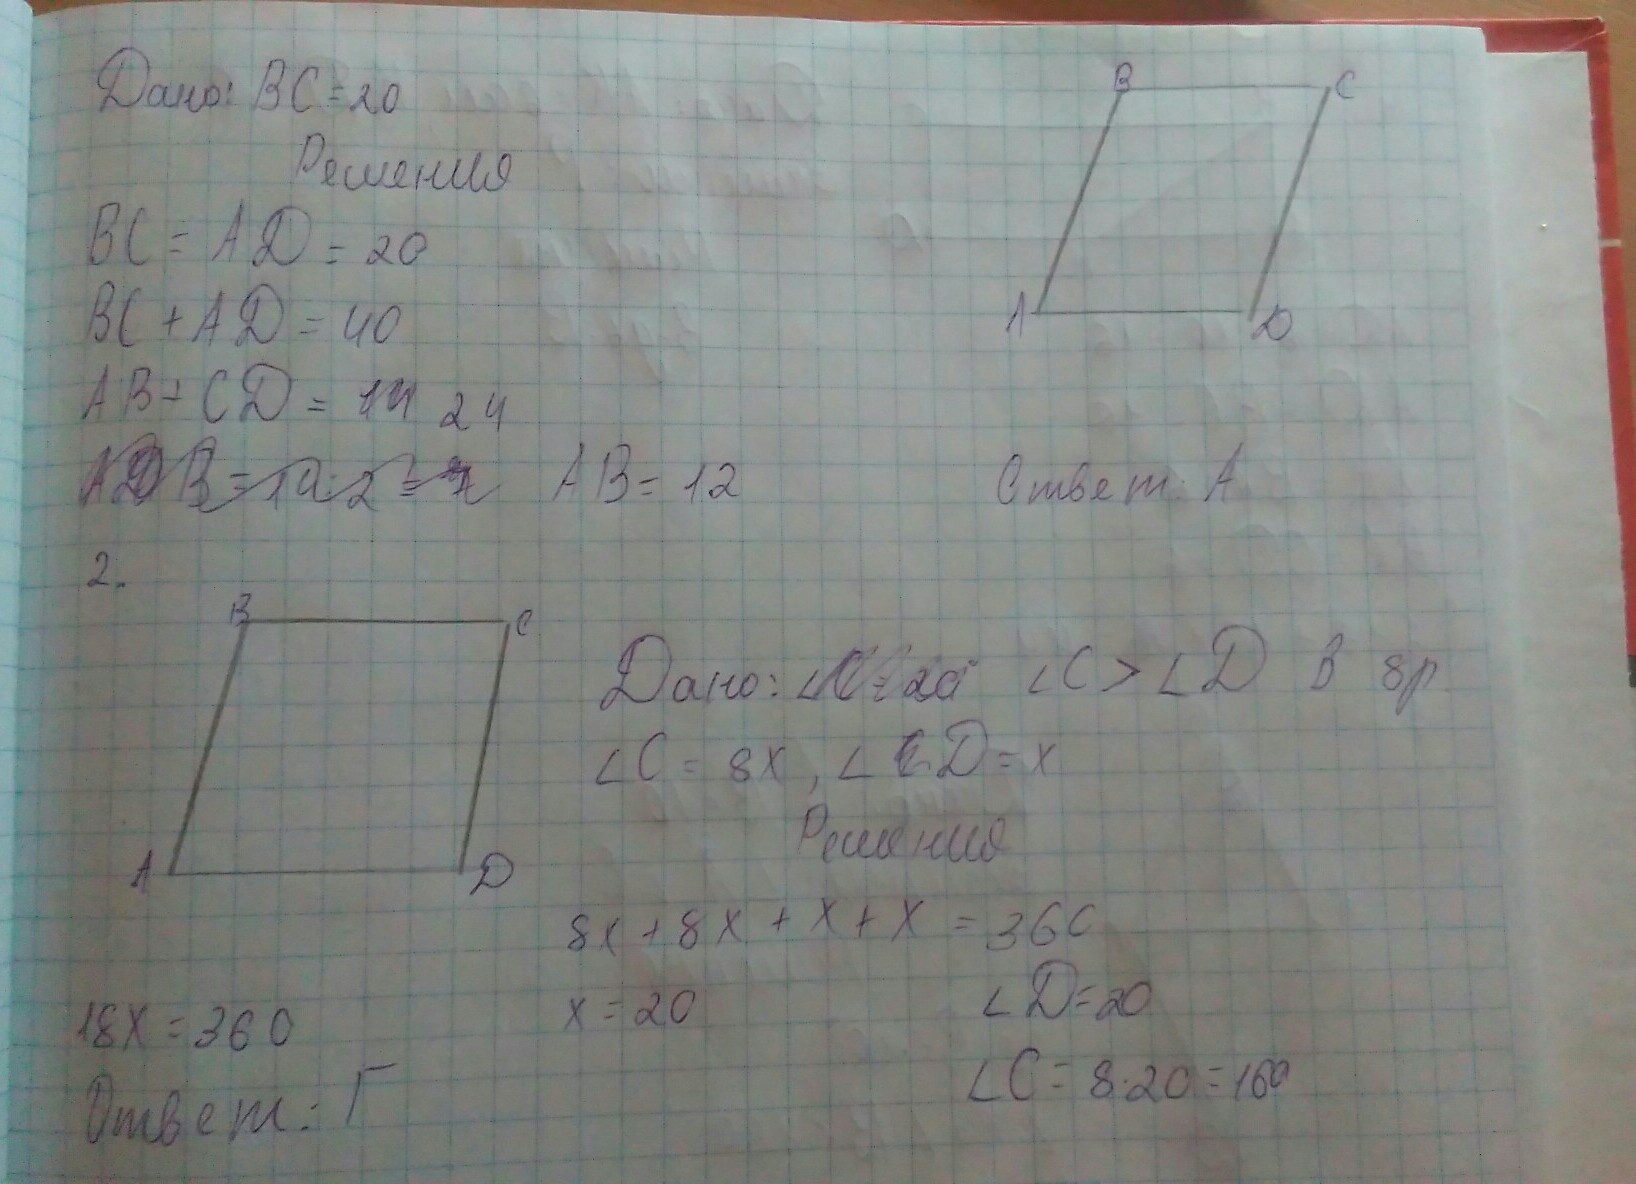 Дано: BC = 20
Решения
BC = AD = 20
BC + AD = 40
AB + CD = 24
AB = 12
Ответ: А
B
C
A
D
2.
B
C
A
D
Дано: ∠C > ∠D В 8р
∠C = 8x, ∠D = x
Решения
8x + 8x + x + x = 360
18x = 360
x = 20
∠D = 20
∠C = 8·20 = 160
Ответ: Г